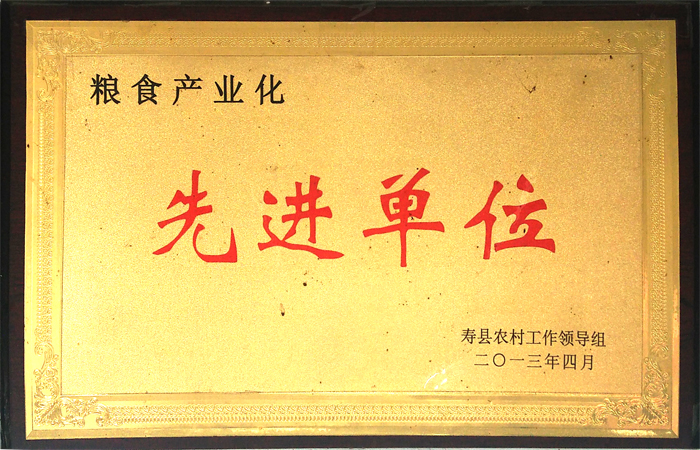 粮食产业化
先进单位
寿县农村工作领导组
二〇一三年四月